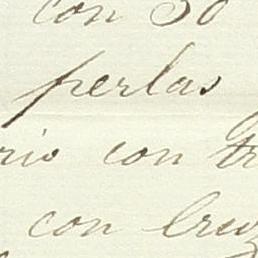 con 50
perlas
rio con tr
con Cruz